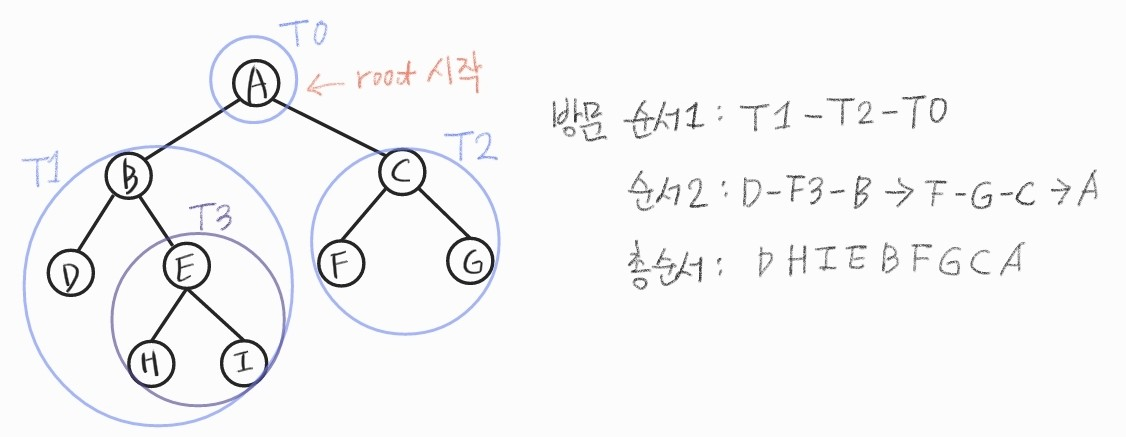 T0
A
← root 시작
T1
B
T2
C
T3
D
E
F
G
H
I
방문 순서1 : T1-T2-T0
순서2 : D-F3-B → F-G-C → A
총순서 : D H I E B F G C A